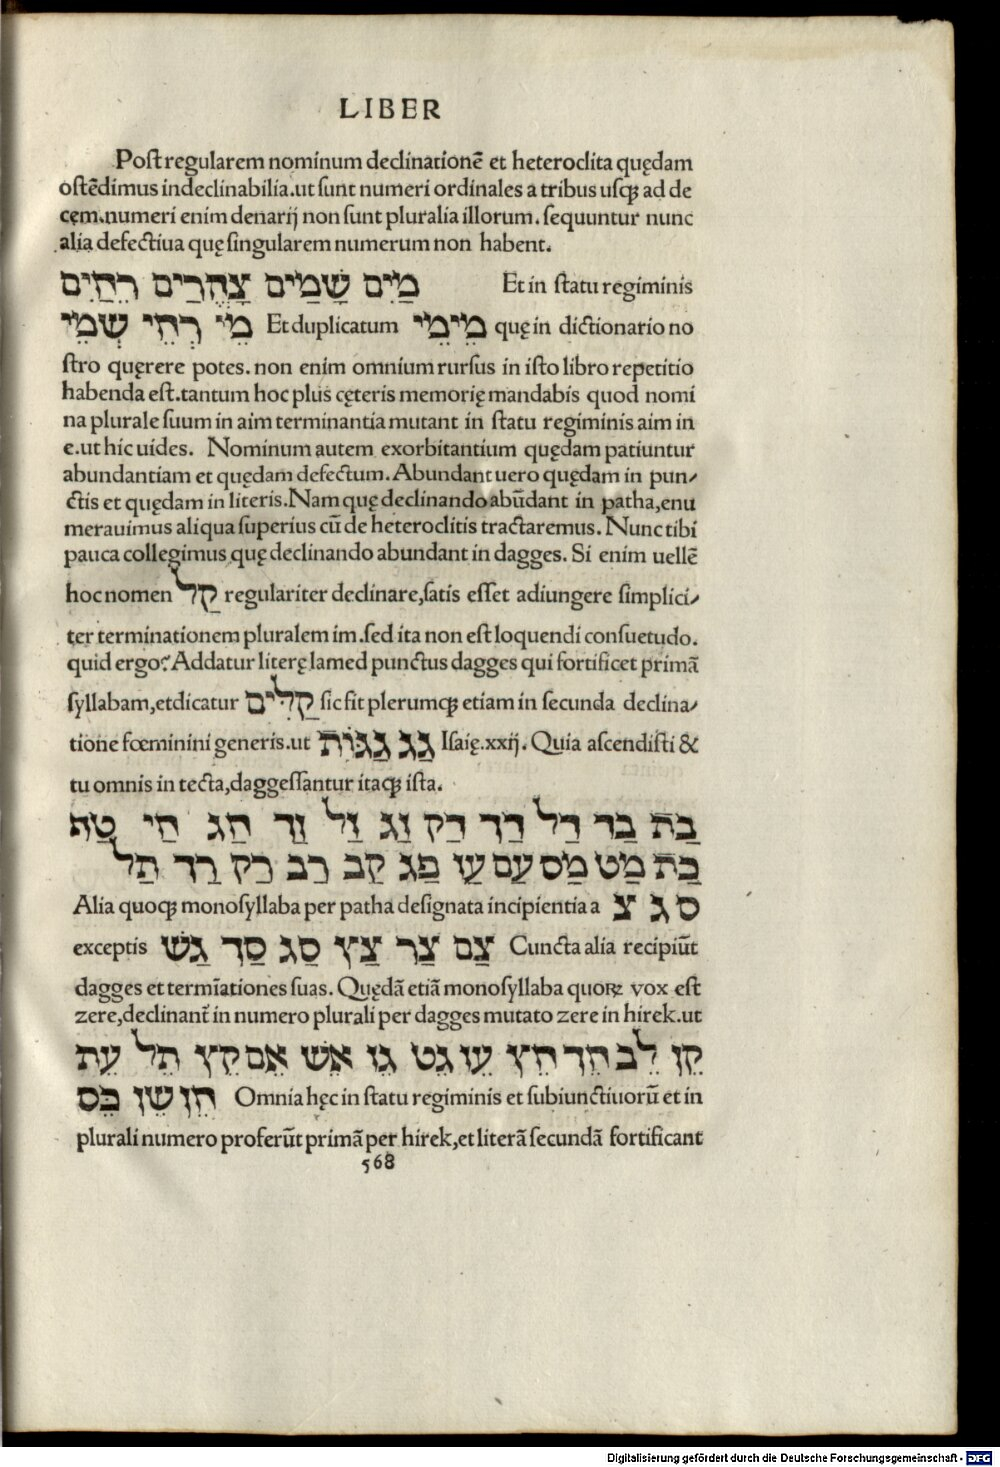 LIBER
Post regularem nominum declinationē et heteroclita quędam
ostēdimus indeclinabilia.ut sunt numeri ordinales a tribus usqꝫ ad de
cem.numeri enim denarij non sunt pluralia illorum. sequuntur nunc
alia defectiua quę singularem numerum non habent.
מַיִם שָׁמַיִם צָהֳרַיִם רֵחַיִם Et in statu regiminis
מֵי רְחֵי שְׁמֵי Et duplicatum מֵימֵי quę in dictionario no
stro quęrere potes. non enim omnium rursus in isto libro repetitio
habenda est.tantum hoc plus cęteris memorię mandabis quod nomi
na plurale suum in aim terminantia mutant in statu regiminis aim in
e.ut hic uides. Nominum autem exorbitantium quędam patiuntur
abundantiam et quędam defectum. Abundant uero quędam in pun⸗
ctis et quędam in literis. Nam quę declinando abūdant in patha,enu
merauimus aliqua superius cū de heteroclitis tractaremus. Nunc tibi
pauca collegimus quę declinando abundant in dagges. Si enim uellē
hoc nomen קַל regulariter declinare,satis esset adiungere simplici⸗
ter terminationem pluralem im.sed ita non est loquendi consuetudo.
quid ergo? Addatur literę lamed punctus dagges qui fortificet primā
syllabam,et dicatur קַלִּים sic fit plerumqꝫ etiam in secunda declina⸗
tione fœminini generis.ut גַג גַגּוֹת Isaię.xxij. Quia ascendisti &
tu omnis in tecta,daggessantur itaqꝫ ista.
בַת בַד דַל דַך דַק וַג וַל וַד חַג חַי טַף
בַת מַט מַס עַם עַז פַג קַב רַב רַק רַד תַל
Alia quoqꝫ monosyllaba per patha designata incipientia a ס ג צ
exceptis צַם צַר צַץ סַג סַד גַשׁ Cuncta alia recipiūt
dagges et termīationes suas. Quędā etiā monosyllaba quoꝝ vox est
zere,declinant̄ in numero plurali per dagges mutato zere in hirek.ut
קֵן לֵב חֵך חֵץ עֵז גֵט גֵז אֵשׁ אֵם קֵץ תֵל עֵת
חֵן שֵׁן כֵּס Omnia hęc in statu regiminis et subiunctiuorū et in
plurali numero proferūt primā per hirek,et literā secundā fortificant
568
Digitalisierung gefördert durch die Deutsche Forschungsgemeinschaft - DFG